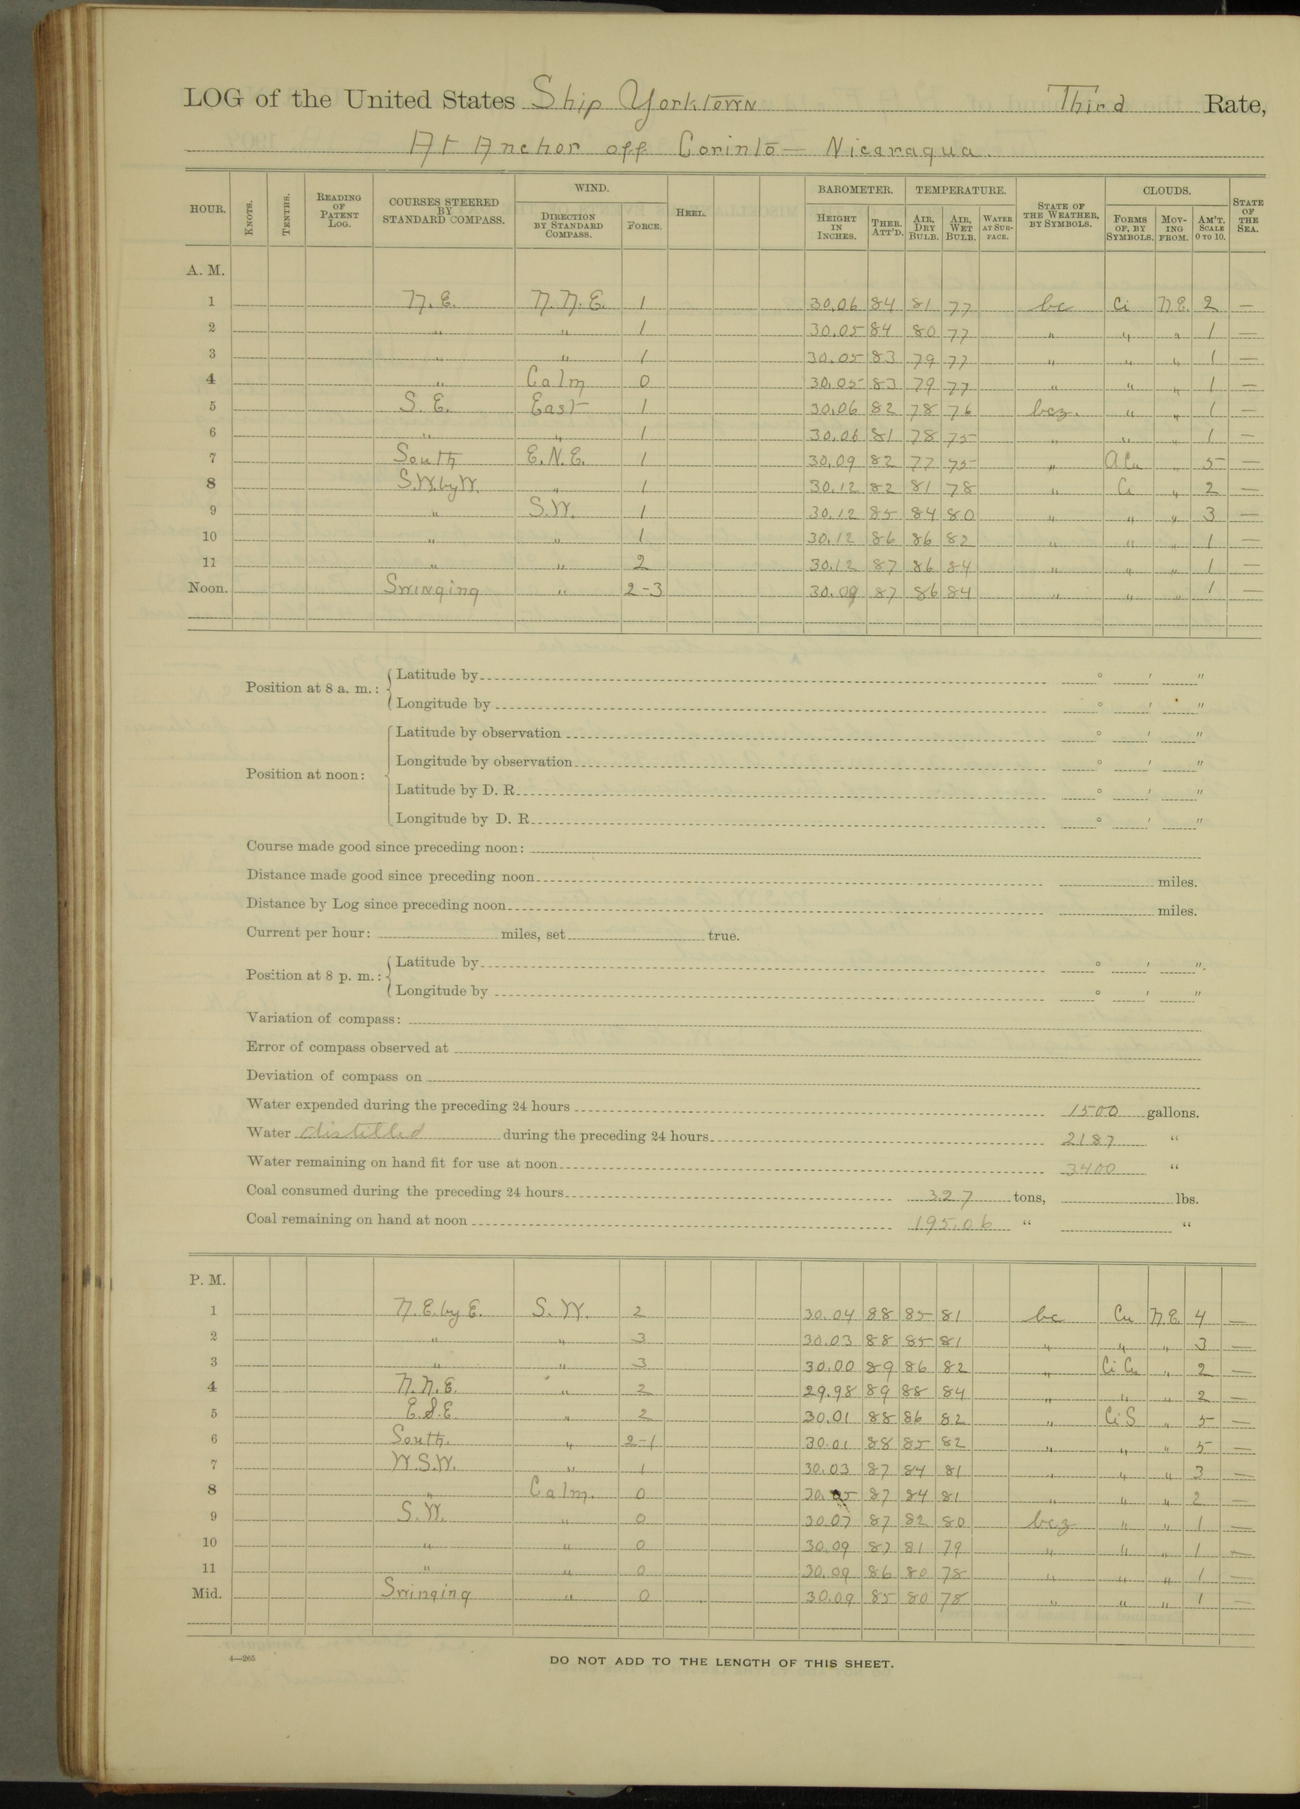 LOG of the United States Ship Yorktown Third Rate,
At Anchor off Corinto — Nicaragua.
HOUR. KNOTS. TENTHS. READING OF PATENT LOG. COURSES STEERED BY STANDARD COMPASS. WIND. DIRECTION BY STANDARD COMPASS. FORCE. HEEL. BAROMETER. HEIGHT IN INCHES. THER. ATT'D. TEMPERATURE. AIR, DRY BULB. AIR, WET BULB. WATER AT SURFACE. STATE OF THE WEATHER, BY SYMBOLS. CLOUDS. FORMS OF, BY SYMBOLS. MOVING FROM. AM'T. SCALE 0 TO 10. STATE OF THE SEA.
A. M.
1 N.E. N.N.E. 1 30.06 84 81 77 bc Ci N.E. 2 —
2 " " 1 30.05 84 80 77 " " " 1 —
3 " " 1 30.05 83 79 77 " " " 1 —
4 " Calm 0 30.05 83 79 77 " " " 1 —
5 S.E. East 1 30.06 82 78 76 bcz. " " 1 —
6 " " 1 30.06 81 78 75 " " " 1 —
7 South E.N.E. 1 30.09 82 77 75 " A Cu " 5 —
8 S.W. by W. " 1 30.12 82 81 78 " Ci " 2 —
9 " S.W. 1 30.12 85 84 80 " " " 3 —
10 " " 1 30.12 86 86 82 " " " 1 —
11 " " 2 30.12 87 86 84 " " " 1 —
Noon. Swinging " 2-3 30.09 87 86 84 " " " 1 —
Position at 8 a. m.: Latitude by ° ' "
Longitude by ° ' "
Position at noon: Latitude by observation ° ' "
Longitude by observation ° ' "
Latitude by D. R. ° ' "
Longitude by D. R. ° ' "
Course made good since preceding noon:
Distance made good since preceding noon miles.
Distance by Log since preceding noon miles.
Current per hour: miles, set true.
Position at 8 p. m.: Latitude by ° ' "
Longitude by ° ' "
Variation of compass:
Error of compass observed at
Deviation of compass on
Water expended during the preceding 24 hours 1500 gallons.
Water distilled during the preceding 24 hours 2187 "
Water remaining on hand fit for use at noon 3400 "
Coal consumed during the preceding 24 hours 3.27 tons, lbs.
Coal remaining on hand at noon 195.06 " "
P. M.
1 N.E. by E. S.W. 2 30.04 88 85 81 bc Cu N.E. 4 —
2 " " 3 30.03 88 85 81 " " " 3 —
3 " " 3 30.00 89 86 82 " Ci Cu " 2 —
4 N.N.E. " 2 29.98 89 88 84 " " " 2 —
5 E.S.E. " 2 30.01 88 86 82 " Ci S " 5 —
6 South. " 2-1 30.01 88 85 82 " " " 5 —
7 W.S.W. " 1 30.03 87 84 81 " " " 3 —
8 " Calm. 0 30.05 87 84 81 " " " 2 —
9 S.W. " 0 30.07 87 82 80 bcz " " 1 —
10 " " 0 30.09 87 81 79 " " " 1 —
11 " " 0 30.09 86 80 78 " " " 1 —
Mid. Swinging " 0 30.09 85 80 78 " " " 1 —
4—265
DO NOT ADD TO THE LENGTH OF THIS SHEET.